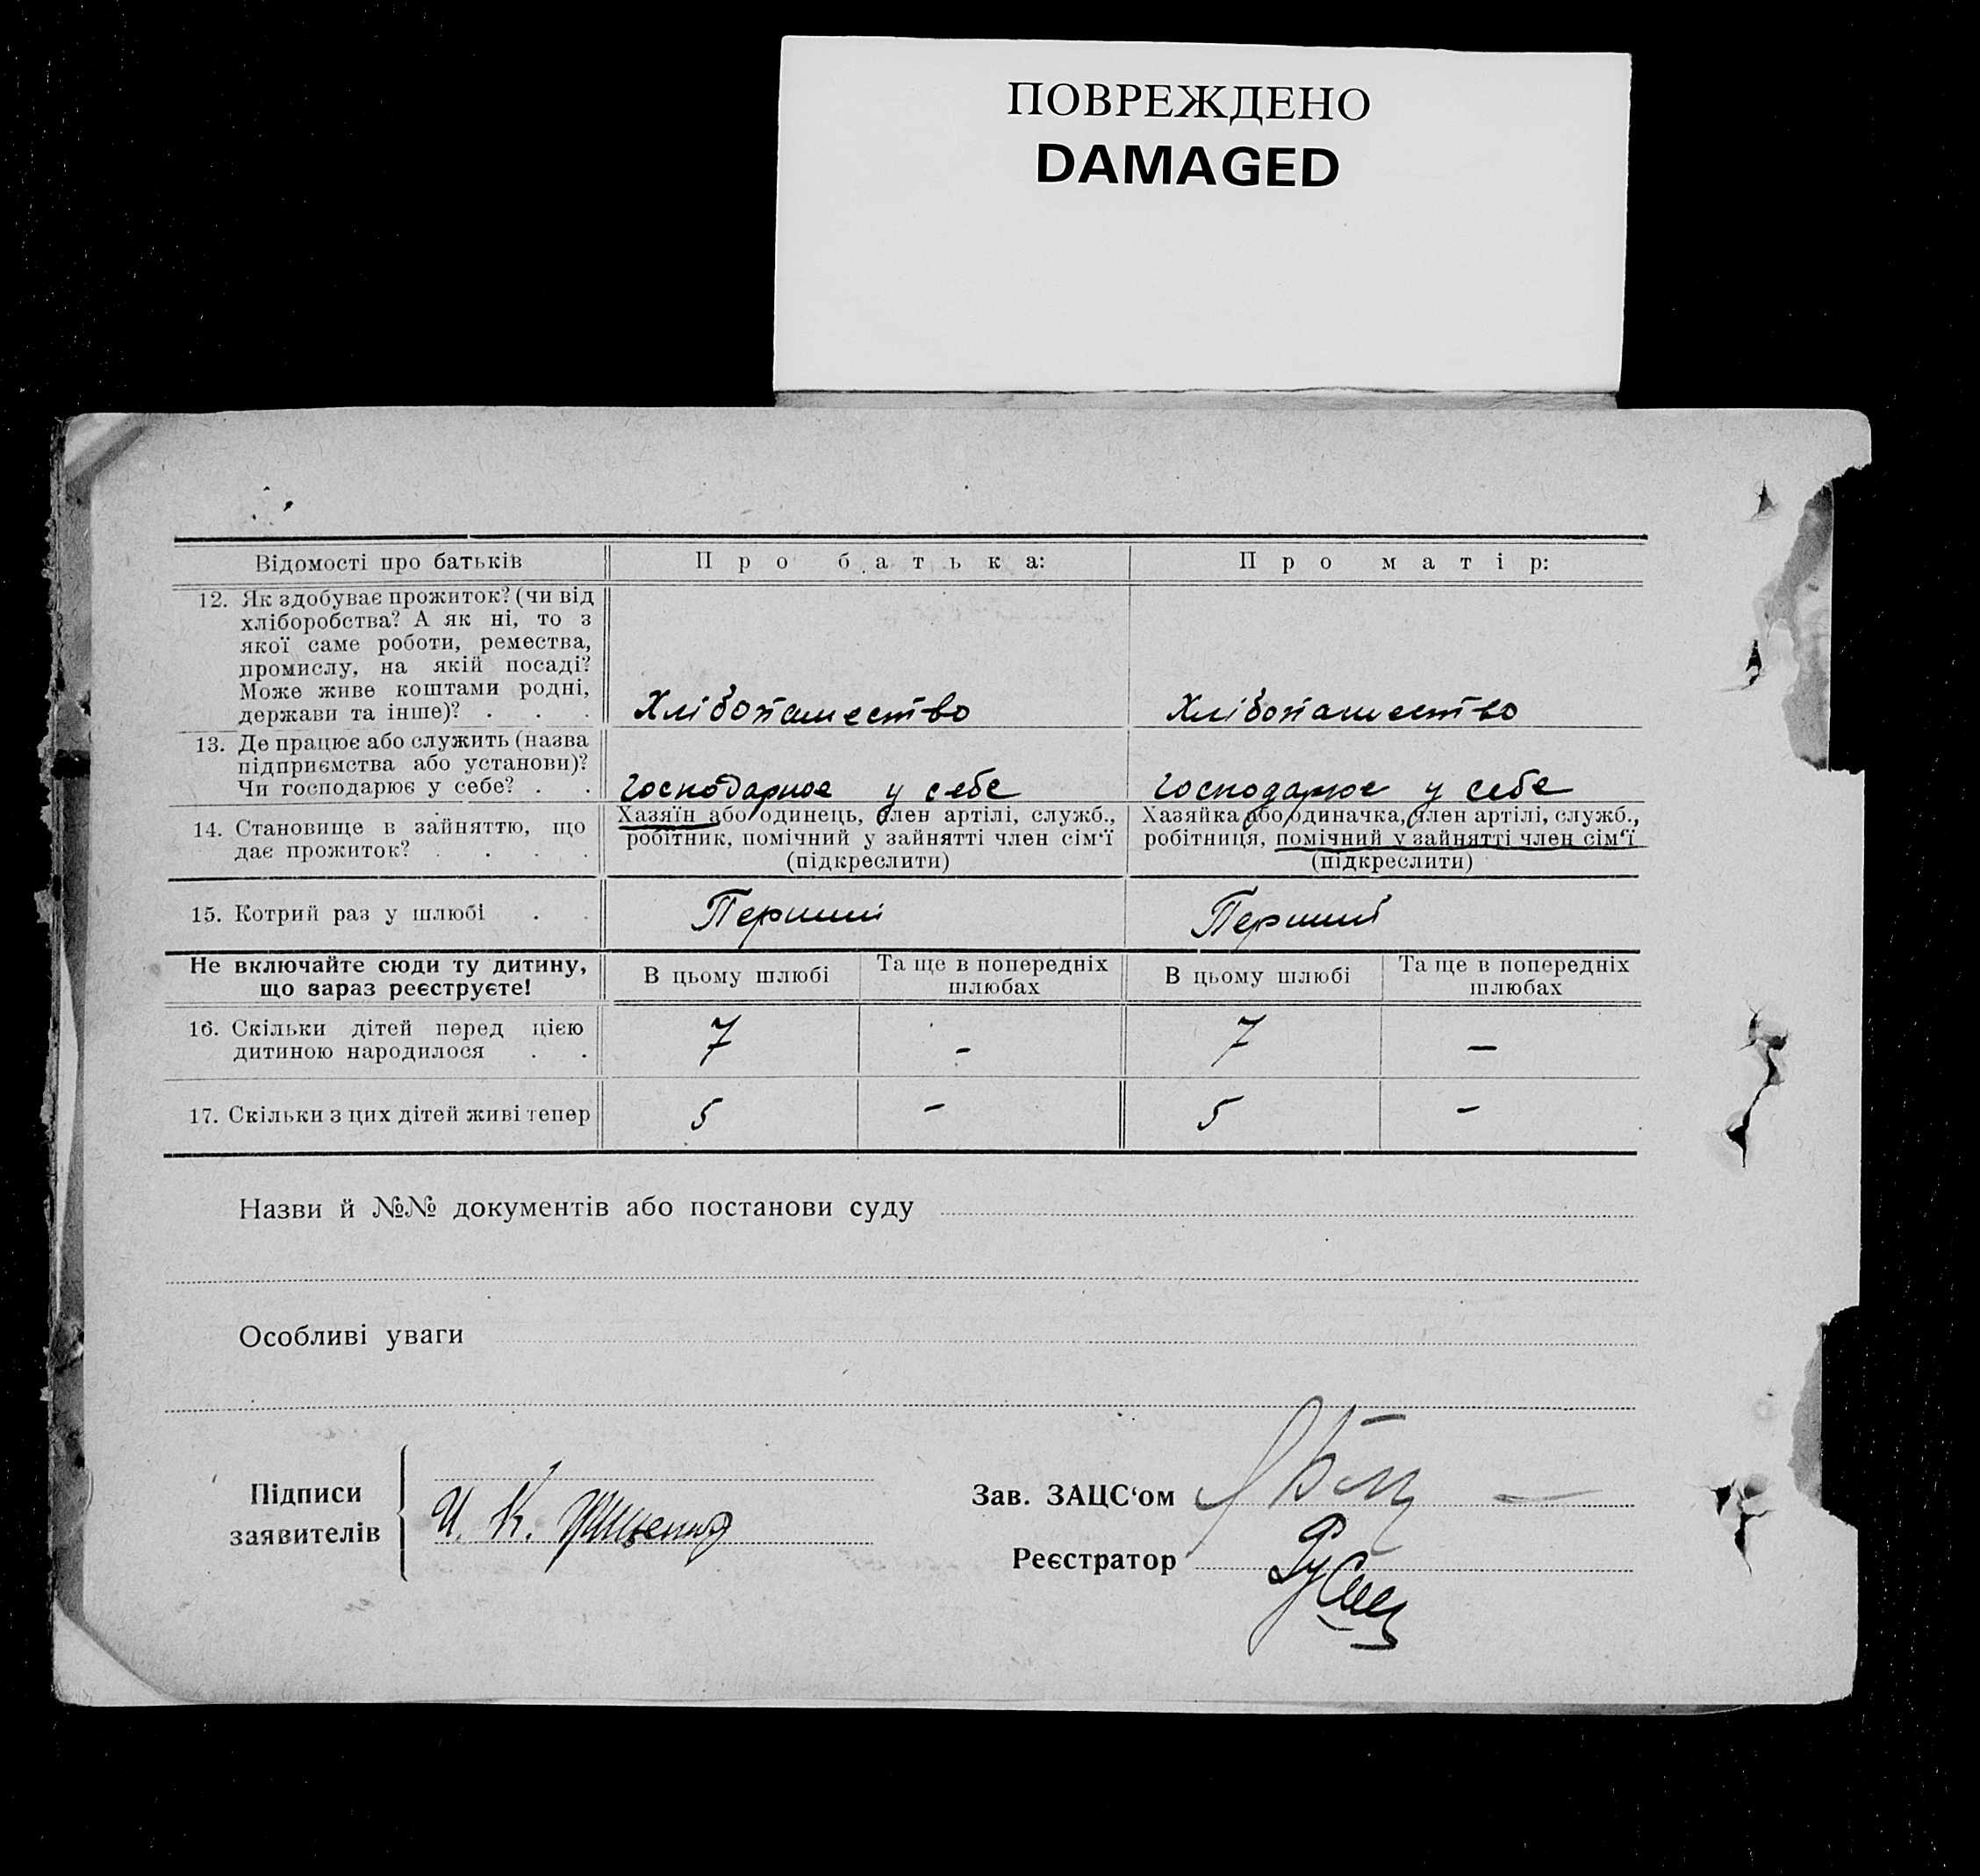 ПОВРЕЖДЕНО
DAMAGED
Відомості про батьків
Про батька:
Про матір:
12. Як здобуває прожиток? (чи від
хліборобства? А як ні, то з
якої саме роботи, ремества,
промислу, на якій посаді?
Може живе коштами родні,
держави та інше)? . . .
Хлібопашество
Хлібопашество
13. Де працює або служить (назва
підприємства або установи)?
Чи господарює у себе? . .
господарює у себе
господарює у себе
14. Становище в зайняттю, що
дає прожиток? . . . .
Хазяїн або одинець, член артілі, служб.,
робітник, помічний у зайнятті член сім'ї
(підкреслити)
Хазяйка або одиначка, член артілі, служб.,
робітниця, помічний у зайнятті член сім'ї
(підкреслити)
15. Котрий раз у шлюбі . .
Перший
Перший
Не включайте сюди ту дитину,
що зараз реєструєте!
В цьому шлюбі
Та ще в попередніх
шлюбах
В цьому шлюбі
Та ще в попередніх
шлюбах
16. Скільки дітей перед цією
дитиною народилося . .
7
-
7
—
17. Скільки з цих дітей живі тепер
5
-
5
-
Назви й №№ документів або постанови суду
Особливі уваги
Підписи
заявителів
И. К.
Зав. ЗАЦС‘ом
Реєстратор